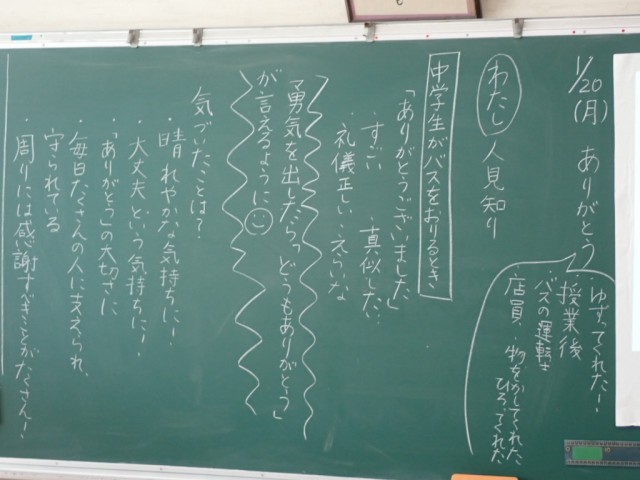 1/20(月) ありがとう
ゆずってくれた!
・授業後
バスの運転士
店員
・物をかしてくれた
ひろってくれた
わたし 人見知り
中学生がバスをおりるとき
「ありがとうございました」
・すごい ・真似したい
・礼儀正しい・えらいな
勇気を出したらっどうもありがとう」
が言えるように
気づいたことは?
・晴れやかな気持ちに!
・大丈夫という気持ちに!
・「ありがとう」の大切さに
・毎日たくさんの人に支えられ、
守られている
・周りには感謝すべきことがたくさん!